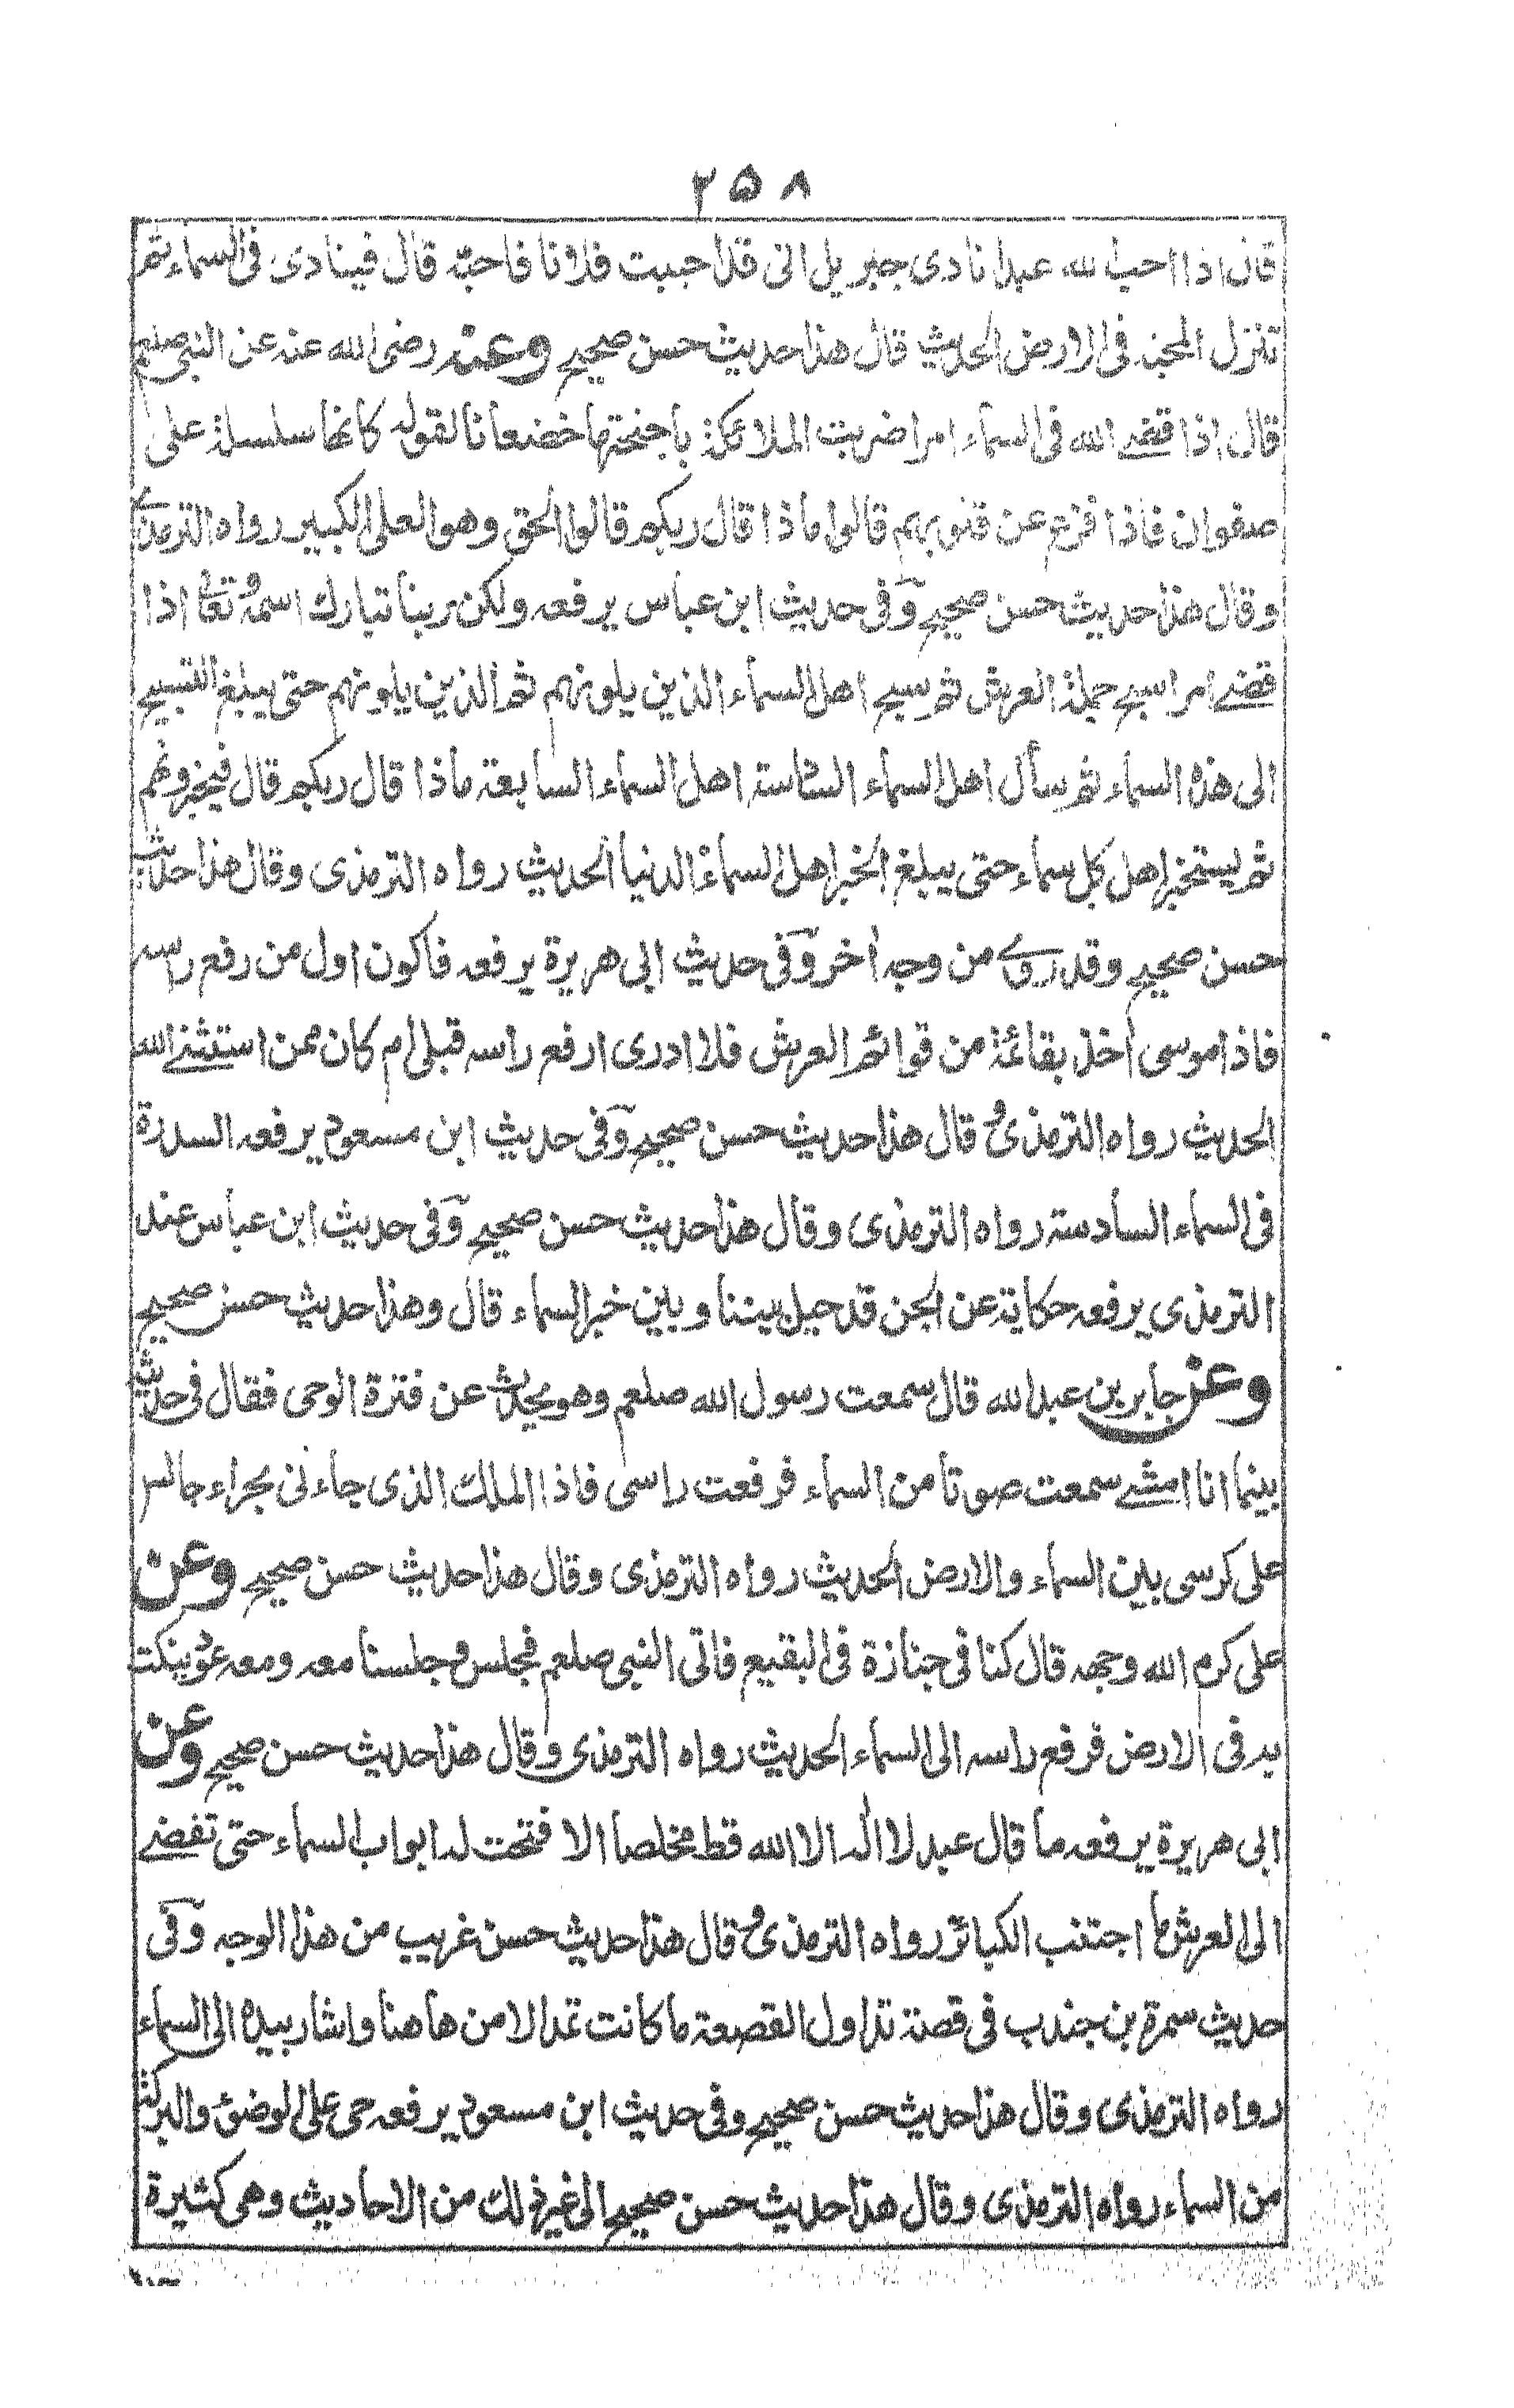 ٢٥٨
قال اذا احب الله عبدا نادى جبريل انى قد احببت فلانا فاحبه قال فينادى فى السماء ثم
تنزل المحبة فى الارض الحديث قال هذا حديث حسن صحيح وعنه رضى الله عنه عن النبى صلعم
قال اذا قضى الله فى السماء امرا ضربت الملائكة باجنحتها خضعانا لقوله كانها سلسلة على
صفوان فاذا فزع عن قلوبهم قالوا ماذا قال ربكم قالوا الحق وهو العلى الكبير رواه الترمذى
وقال هذا حديث حسن صحيح وفى حديث ابن عباس يرفعه ولكن ربنا تبارك اسمه وتعالى اذا
قضى امرا سبح حملة العرش ثم سبح اهل السماء الذين يلونهم ثم الذين يلونهم حتى يبلغ التسبيح
الى هذه السماء ثم سأل اهل السماء السادسة اهل السماء السابعة ماذا قال ربكم قال فيخبرونهم
ثم يستخبر اهل كل سماء حتى يبلغ الخبر اهل السماء الدنيا الحديث رواه الترمذى وقال هذا حديث
حسن صحيح وقد روى من وجه اخر وفى حديث ابى هريرة يرفعه فاكون اول من رفع راسه
فاذا موسى اخذ بقائمة من قوائم العرش فلا ادرى ارفع راسه قبلى ام كان ممن استثنى الله
الحديث رواه الترمذى وقال هذا حديث حسن صحيح وفى حديث ابن مسعود يرفعه السدرة
فى السماء السادسة رواه الترمذى وقال هذا حديث حسن صحيح وفى حديث ابن عباس عند
الترمذى يرفعه حكاية عن الجن قد حيل بيننا وبين خبر السماء قال وهذا حديث حسن صحيح
وعن جابر بن عبد الله قال سمعت رسول الله صلعم وهو يحدث عن فترة الوحى فقال فى حديثه
بينما انا امشى سمعت صوتا من السماء فرفعت راسى فاذا الملك الذى جاءنى بحراء جالس
على كرسى بين السماء والارض الحديث رواه الترمذى وقال هذا حديث حسن صحيح وعن
على كرم الله وجهه قال كنا فى جنازة فى البقيع فاتى النبى صلعم فجلس وجلسنا معه ومعه عود ينكت
به فى الارض فرفع راسه الى السماء الحديث رواه الترمذى وقال هذا حديث حسن صحيح وعن
ابى هريرة يرفعه ما قال عبد لا اله الا الله قط مخلصا الا فتحت له ابواب السماء حتى تفضى
الى العرش ما اجتنب الكبائر رواه الترمذى وقال هذا حديث حسن غريب من هذا الوجه وفى
حديث سمرة بن جندب فى قصة تداول القصعة ما كانت تمد الا من هاهنا واشار بيده الى السماء
رواه الترمذى وقال هذا حديث حسن صحيح وفى حديث ابن مسعود يرفعه حى على الوضوء والبركة
من السماء رواه الترمذى وقال هذا حديث حسن صحيح الى غير ذلك من الاحاديث وهى كثيرة